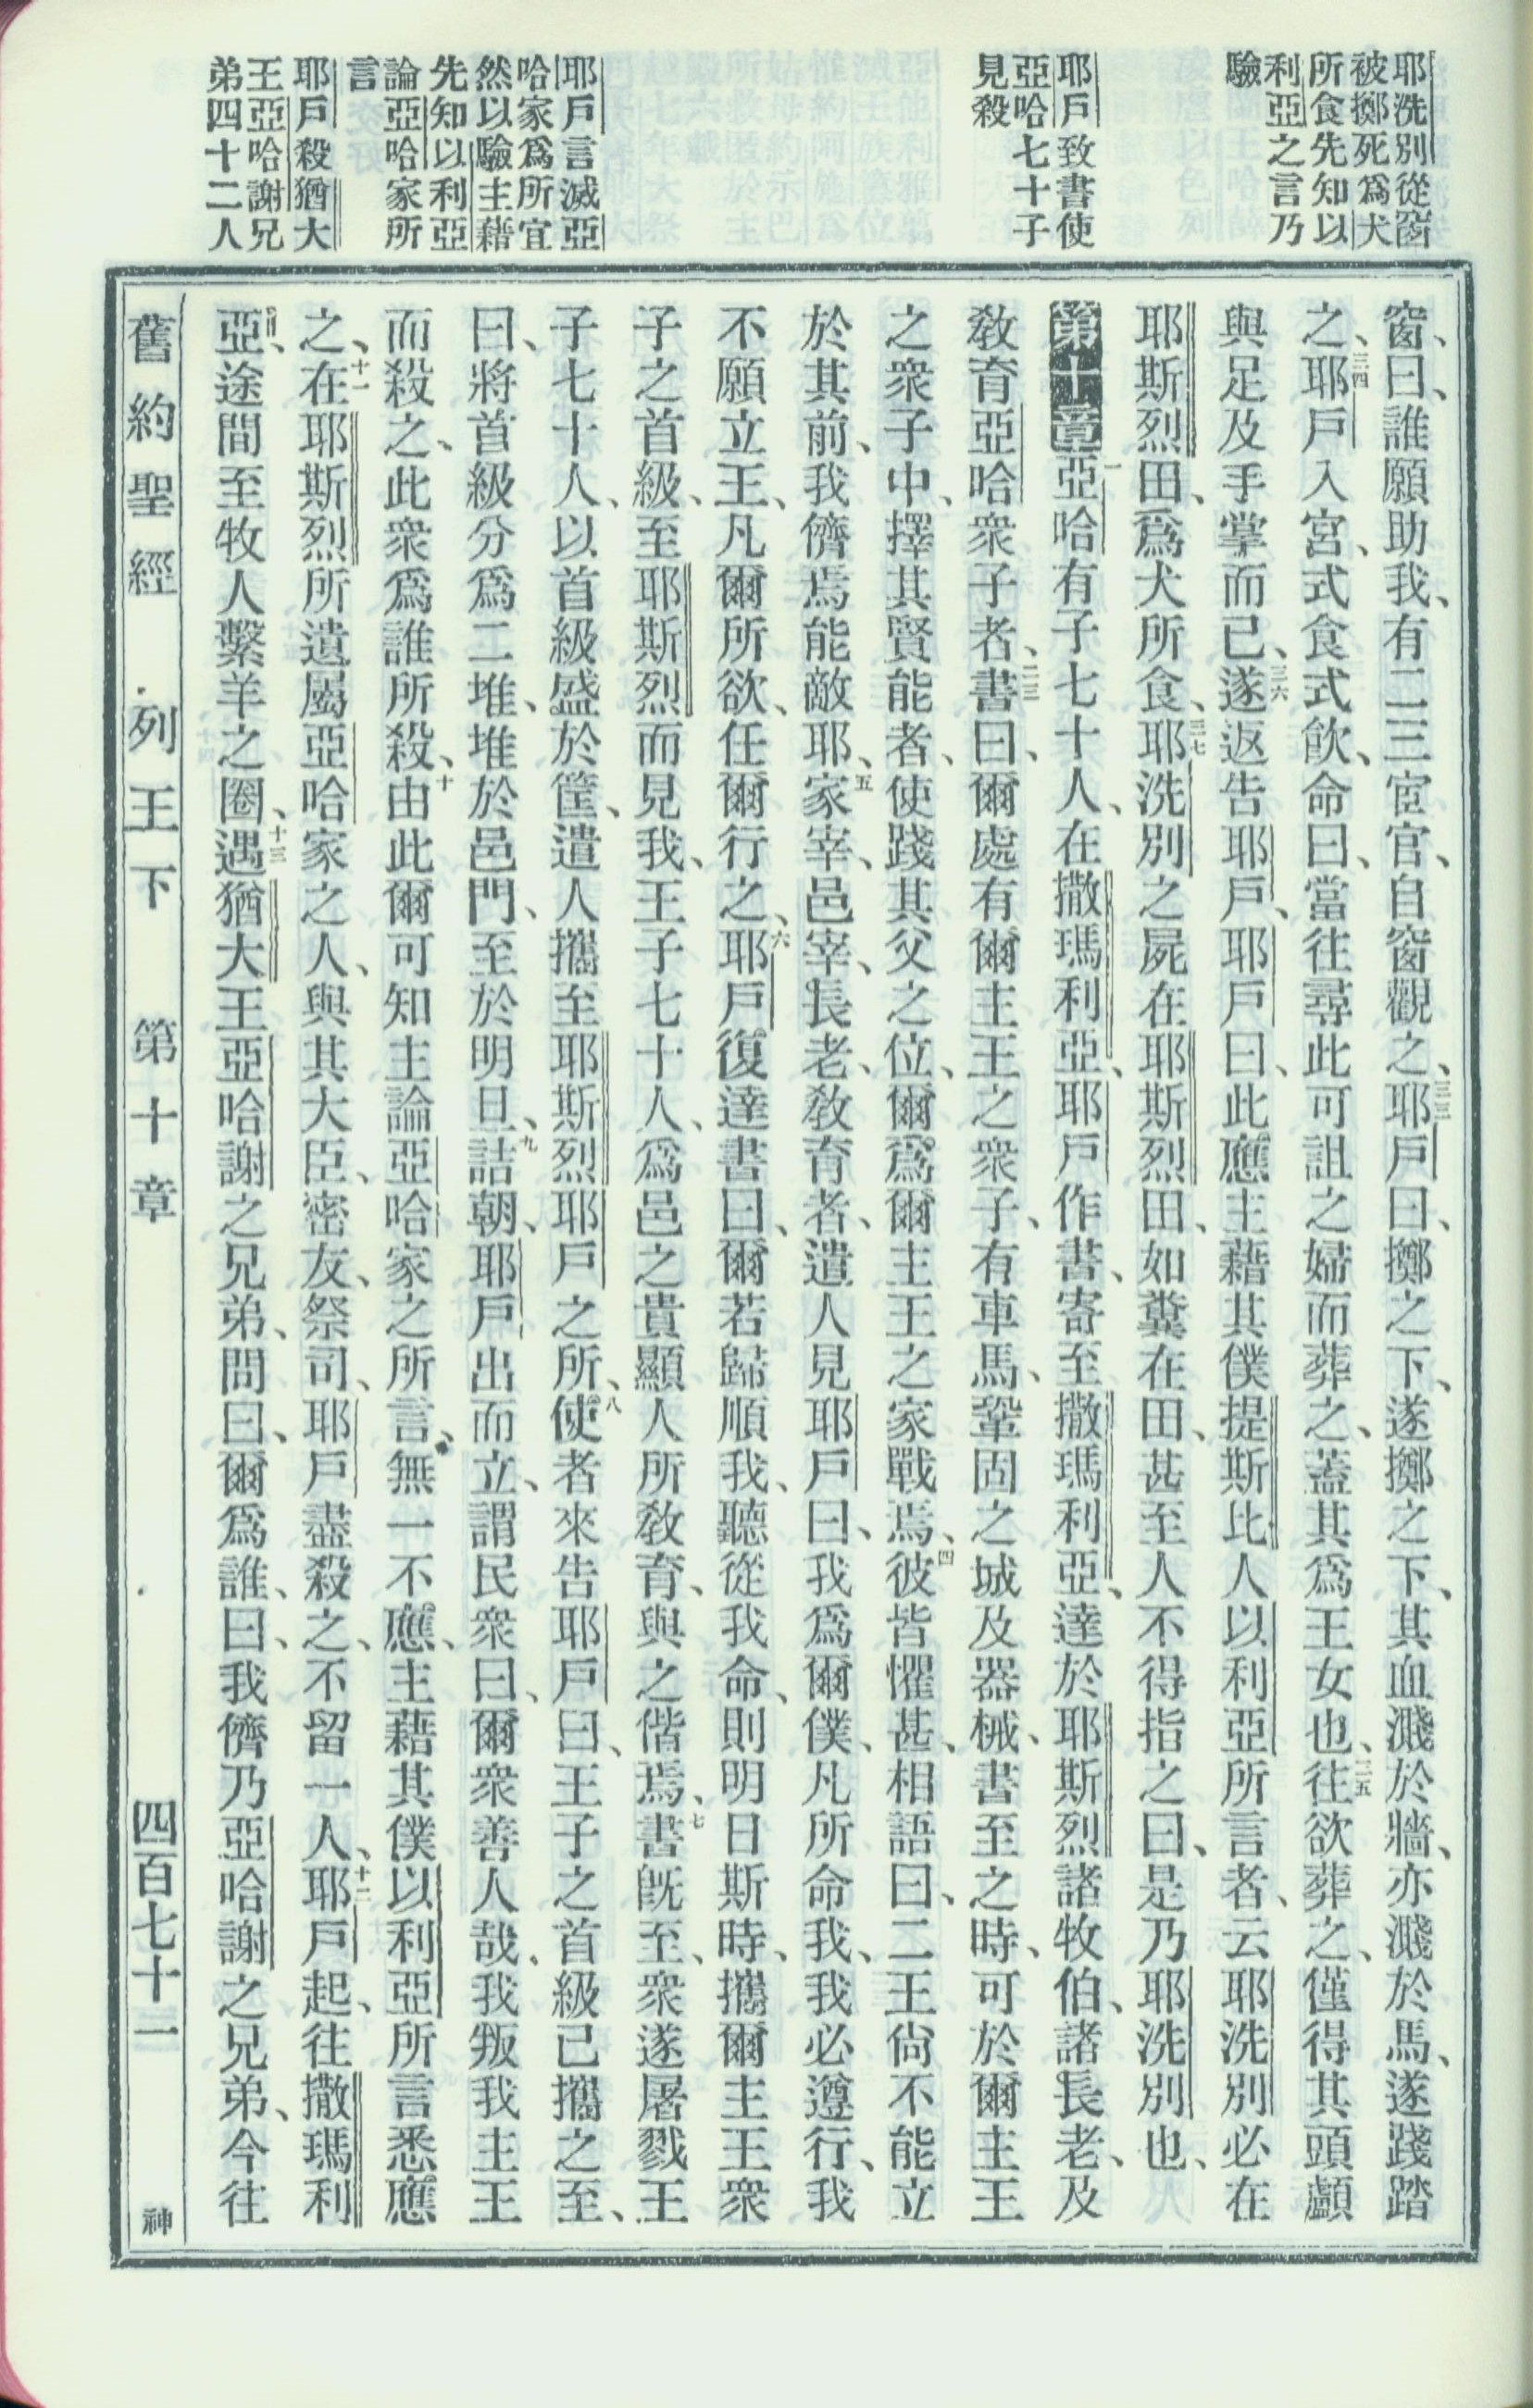 耶洗別從窗
被擲死爲犬
所食先知以
利亞之言乃
驗
耶戶致書使
亞哈七十子
見殺
耶戶言滅亞
哈家爲所宜
然以驗主藉
先知以利亞
論亞哈家所
言
耶戶殺猶大
王亞哈謝兄
弟四十二人
窗、曰、誰願助我、有二三宦官、自窗觀之、三三耶戶曰、擲之下、遂擲之下、其血濺於牆、亦濺於馬、遂踐踏
之、三四耶戶入宮、式食式飲、命曰、當往尋此可詛之婦而葬之、蓋其爲王女也、三五往欲葬之、僅得其頭顱
與足及手掌而已、三六遂返告耶戶、耶戶曰、此應主藉其僕提斯比人以利亞所言者、云耶洗別必在
耶斯烈田、爲犬所食、三七耶洗別之屍在耶斯烈田、如糞在田、甚至人不得指之曰、是乃耶洗別也、
第十章 一亞哈有子七十人、在撒瑪利亞、耶戶作書、寄至撒瑪利亞、達於耶斯烈諸牧伯、諸長老、及
敎育亞哈衆子者、二三書曰、爾處有爾主王之衆子、有車馬、鞏固之城及器械、書至之時、可於爾主王
之衆子中、擇其賢能者、使踐其父之位、爾爲爾主王之家戰焉、四彼皆懼甚、相語曰、二王尙不能立
於其前、我儕焉能敵耶、五家宰、邑宰、長老、敎育者、遣人見耶戶曰、我爲爾僕、凡所命我、我必遵行、我
不願立王、凡爾所欲、任爾行之、六耶戶復達書曰、爾若歸順我、聽從我命、則明日斯時、攜爾主王衆
子之首級、至耶斯烈而見我、王子七十人、爲邑之貴顯人所敎育、與之偕焉、七書旣至、衆遂屠戮王
子七十人、以首級盛於筐、遣人攜至耶斯烈耶戶之所、八使者來告耶戶曰、王子之首級已攜之至、
曰、將首級分爲二堆、堆於邑門、至於明旦、九詰朝、耶戶出而立、謂民衆曰、爾衆善人哉、我叛我主王
而殺之、此衆爲誰所殺、十由此爾可知主論亞哈家之所言、無一不應、主藉其僕以利亞所言悉應
之、十一在耶斯烈所遺屬亞哈家之人、與其大臣、密友、祭司、耶戶盡殺之、不留一人、十二耶戶起、往撒瑪利
亞、途間至牧人繫羊之圈、十三遇猶大王亞哈謝之兄弟、問曰、爾爲誰、曰、我儕乃亞哈謝之兄弟、今往
舊約聖經 列王下 第十章 四百七十一 神